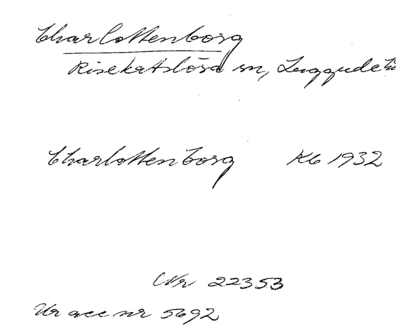 Charlottenborg
Risekatslösa sn, Luggude
Charlottenborg Kb 1932
Nr 22353
Ur acc nr 5692